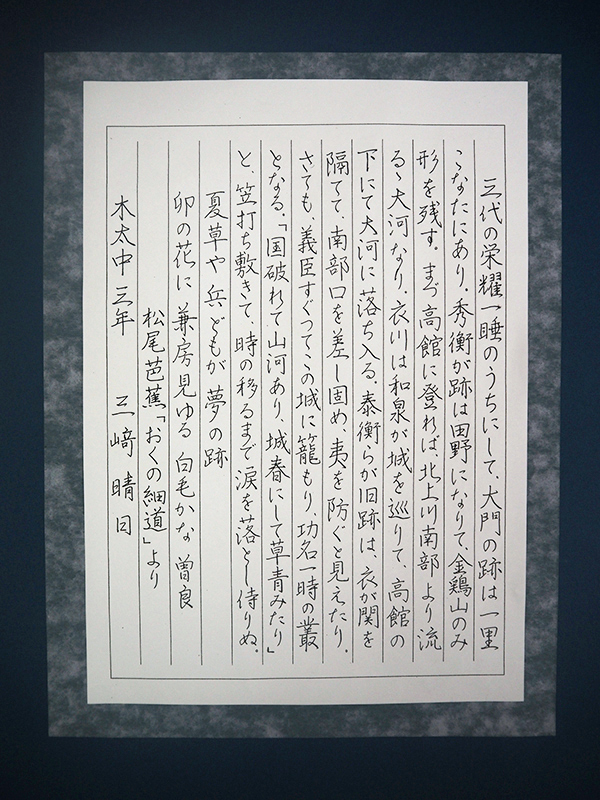 三代の栄耀一睡のうちにして、大門の跡は一里
こなたにあり。秀衡が跡は田野になりて、金鶏山のみ
形を残す。まづ高館に登れば、北上川南部より流
るゝ大河なり。衣川は和泉が城を巡りて、高館の
下にて大河に落ち入る。泰衡らが旧跡は、衣が関を
隔てて、南部口を差し固め、夷を防ぐと見えたり。
さても、義臣すぐつてこの城に籠もり、功名一時の叢
となる。「国破れて山河あり、城春にして草青みたり」
と、笠打ち敷きて、時の移るまで涙を落とし侍りぬ。
夏草や 兵どもが 夢の跡
卯の花に 兼房見ゆる 白毛かな 曽良
松尾芭蕉「おくの細道」より
木太中 三年 三﨑 晴日